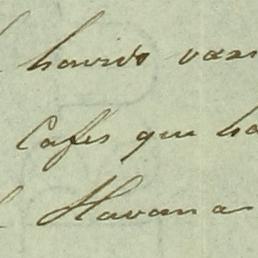 havido vazi
Cafes que ha
Havana